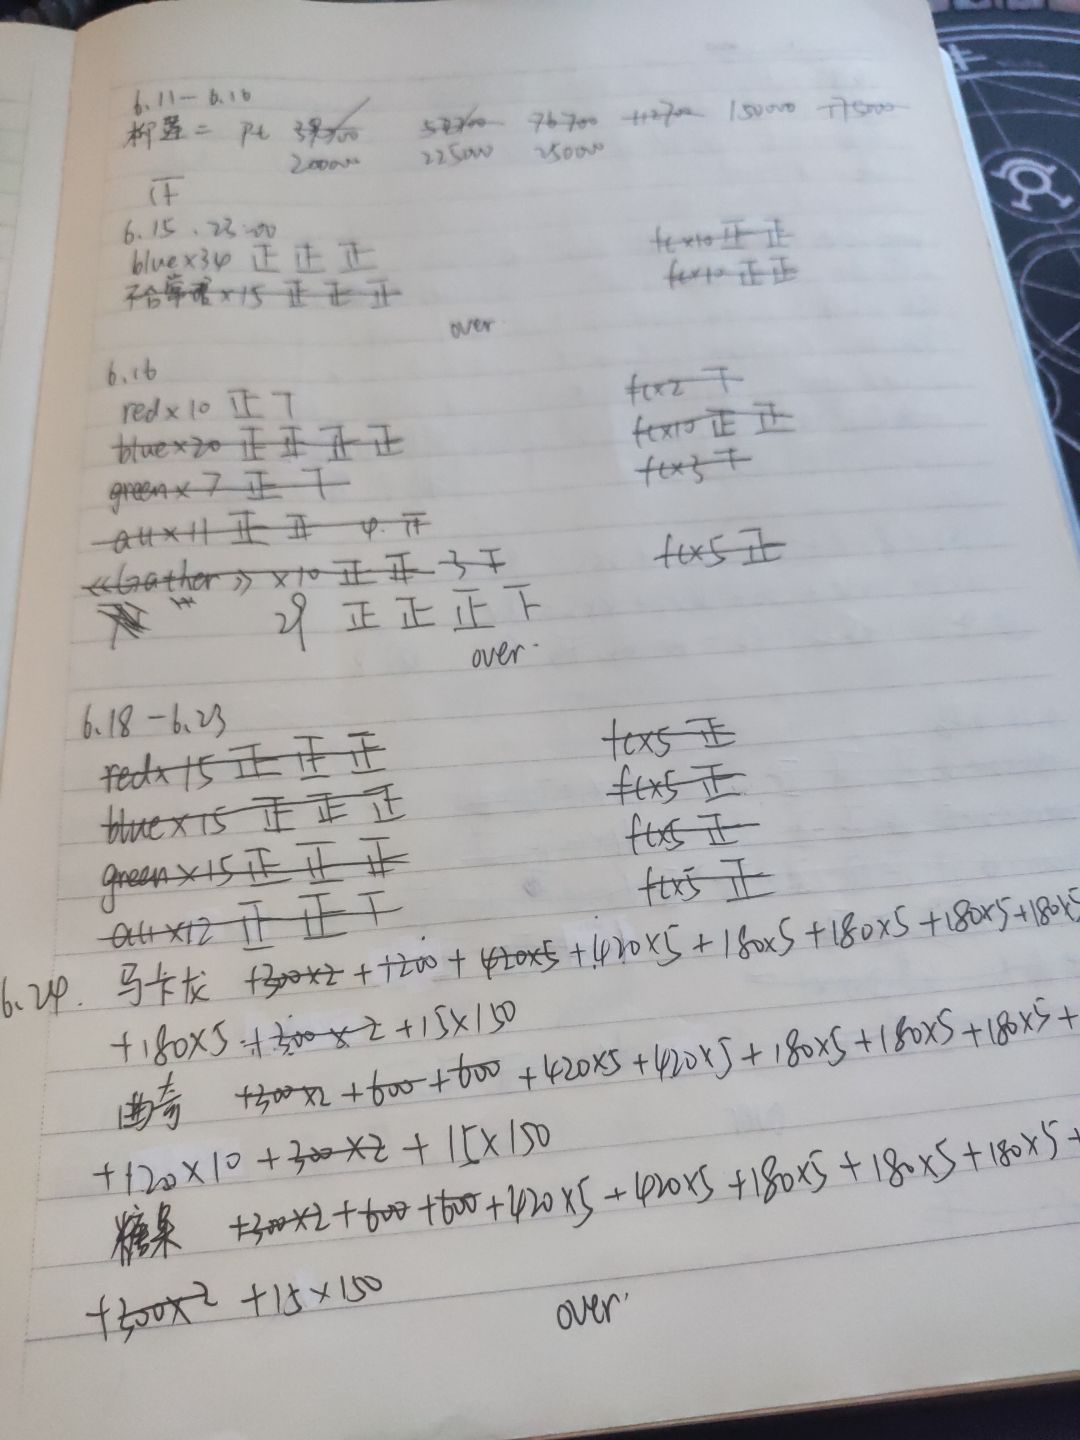 6.11-6.16
Pt 39700 57700 76700 112700 150000 175000
200000 225000 250000
正
6.15.23:00
blue×34 正 正 正 fc×10 正 正
不合常理×15 正 正 正 fc×10 正 正
over.
6.16
red×10 正 T fc×2 下
blue×20 正 正 正 正 fc×10 正 正
green×7 正 T fc×3 下
all×11 正 正 4.正
《Gather》×10 正 正 3 下 fc×5 正
29 正 正 正 下
over.
6.18-6.23
red×15 正 正 正 fc×5 正
blue×15 正 正 正 fc×5 正
green×15 正 正 正 fc×5 正
all×12 正 正 T fc×5 正
6.24. 马卡龙 +300×2 +1200 + 420×5 +420×5 +180×5 +180×5 +180×5 +180×5
+180×5 +300×2 +15×150
曲奇 +300×2 +600 +600 +420×5 +420×5 +180×5 +180×5 +180×5 +
+120×10 +300×2 +15×150
糖果 +300×2 +600 +600 +420×5 +420×5 +180×5 +180×5 +180×5 +
+300×2 +15×150
over.